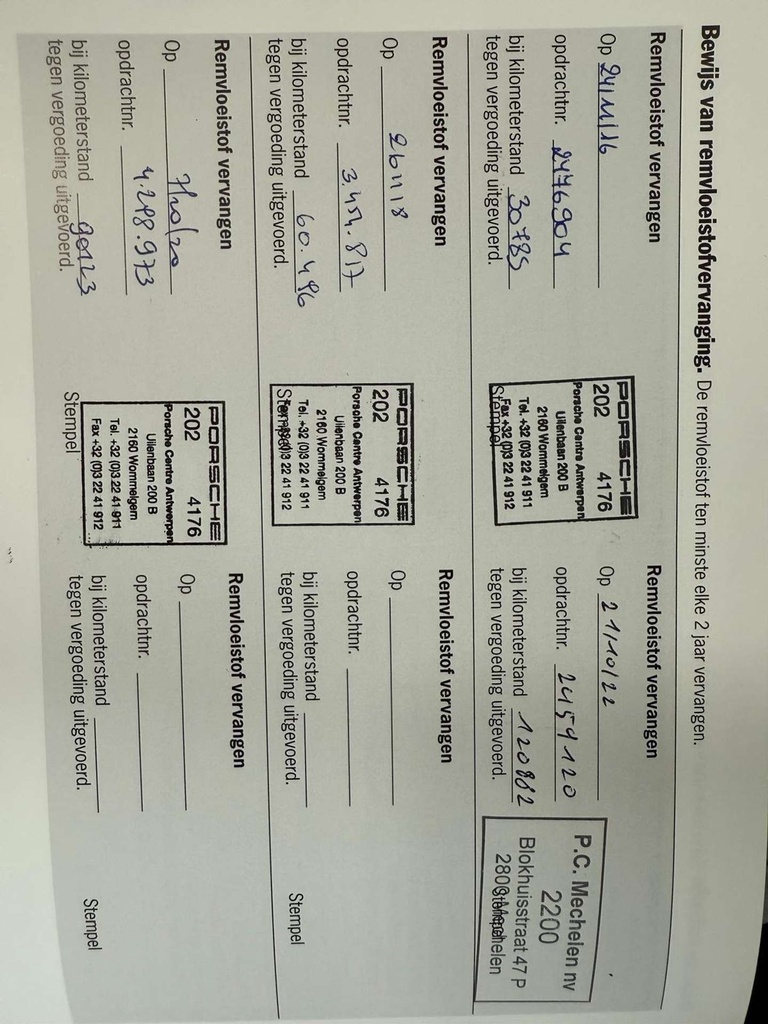 Bewijs van remvloeistofvervanging. De remvloeistof ten minste elke 2 jaar vervangen.
Remvloeistof vervangen
Op 24/11/16
opdrachtnr. 2476.904
bij kilometerstand 30785
tegen vergoeding uitgevoerd.
PORSCHE
202 4176
Porsche Centre Antwerpen
Uilenbaan 200 B
2160 Wommelgem
Tel. +32 (0)3 22 41 911
Fax +32 (0)3 22 41 912
Stempel
Remvloeistof vervangen
Op
opdrachtnr. 3.454.817
bij kilometerstand 60.496
tegen vergoeding uitgevoerd.
PORSCHE
202 4176
Porsche Centre Antwerpen
Uilenbaan 200 B
2160 Wommelgem
Tel. +32 (0)3 22 41 911
Fax +32 (0)3 22 41 912
Stempel
Remvloeistof vervangen
Op
opdrachtnr. 4.298.973
bij kilometerstand 90123
tegen vergoeding uitgevoerd.
PORSCHE
202 4176
Porsche Centre Antwerpen
Uilenbaan 200 B
2160 Wommelgem
Tel. +32 (0)3 22 41 911
Fax +32 (0)3 22 41 912
Stempel
Remvloeistof vervangen
Op 21/10/22
opdrachtnr. 2459120
bij kilometerstand 120882
tegen vergoeding uitgevoerd.
P.C. Mechelen nv
2200
Blokhuisstraat 47 P
2800 Mechelen
Stempel
Remvloeistof vervangen
Op
opdrachtnr.
bij kilometerstand
tegen vergoeding uitgevoerd.
Stempel
Remvloeistof vervangen
Op
opdrachtnr.
bij kilometerstand
tegen vergoeding uitgevoerd.
Stempel